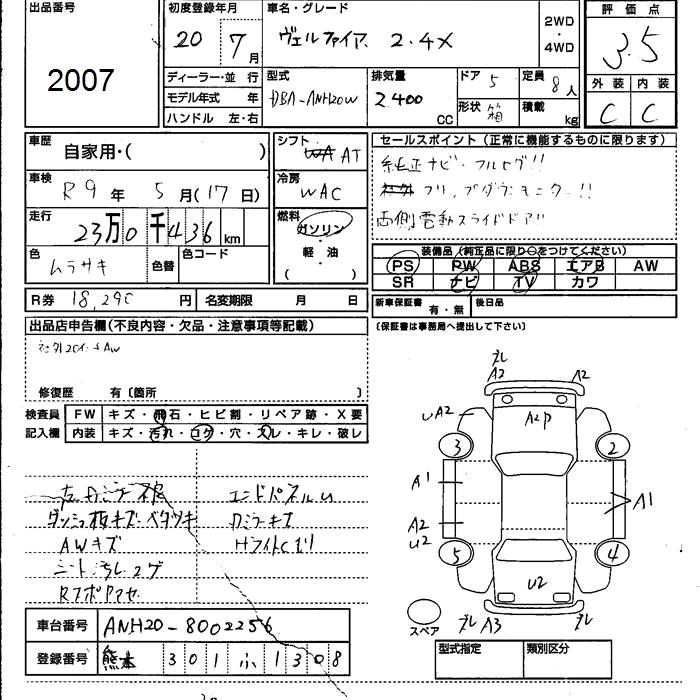 出品番号
2007
初度登録年月
20 7月
車名・グレード
ヴェルファイア 2.4X
2WD・4WD
評価点
3.5
ディーラー・並 行
モデル年式 年
ハンドル 左・右
型式
DBA-ANH20W
排気量
2.400 CC
ドア 5
形状 箱
定員 8人
積載 kg
外装 内装
C C
車歴
自家用・( )
車検
R9年 5月(17日)
走行
23万0千436 km
色
ムラサキ
色替
色コード
シフト
AT
冷房
WAC
燃料
ガソリン・軽油・( )
セールスポイント(正常に機能するものに限ります)
純正ナビ・フルセグ!!
フリップダウンモニター!!
両側電動スライドドア!!
装備品(純正品に限り○をつけてください)
PS PW ABS エアB AW
SR ナビ TV カワ
R券 18,290円
名変期限 月 日
新車保証書 有・無
後日品
(保証書は事務局へ提出して下さい)
出品店申告欄(不良内容・欠品・注意事項等記載)
社外20インチAW
修復歴 有〔箇所 〕
検査員記入欄
FW キズ・飛石・ヒビ割・リペア跡・X要
内装 キズ・汚れ・コゲ・穴・スレ・キレ・破レ
ダッシュ板キズ・ベタツキ
AWキズ
シート汚レコゲ
エンドパネルU
カミラーキズ
Hライトくもり
ブレ
A2 A2
UA2 A2P
3 2
A1 A1
A2
U2
5 4
U2
ブレ A3 ブレ
スペア
車台番号 ANH20-8002256
登録番号 熊本 301 ふ 1308
型式指定 類別区分